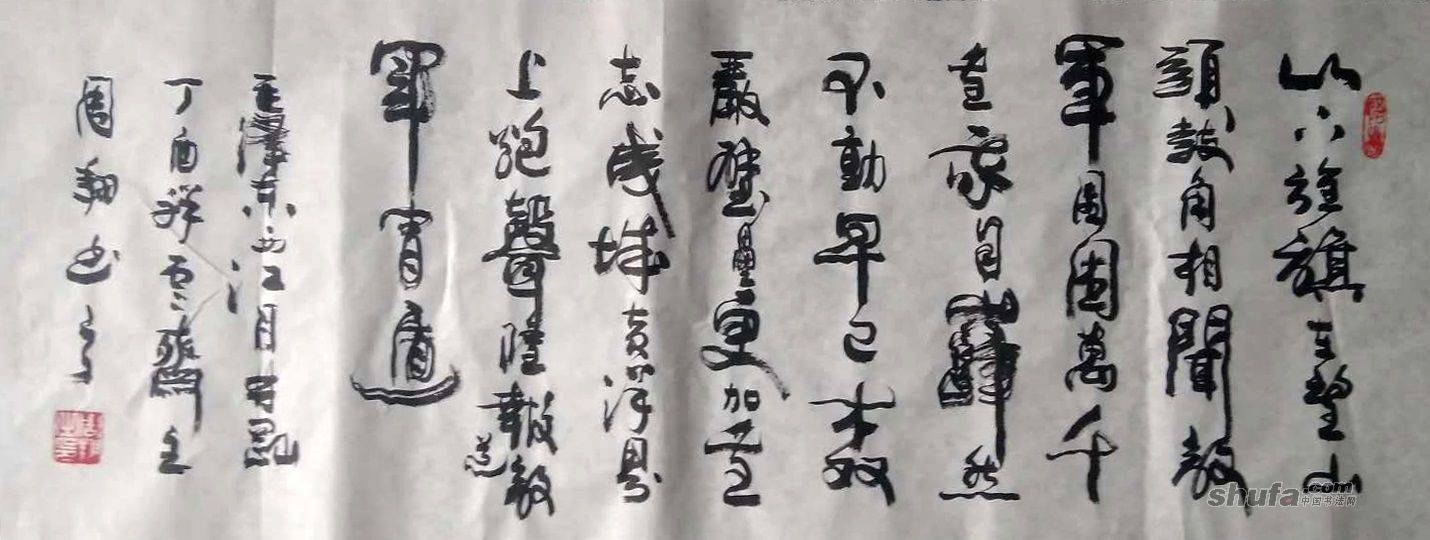 山下旌旗在望山
頭鼓角相聞敵
軍圍困萬千
重我自巋然
不動早已森
嚴壁壘更加众
志成城黄洋界
上炮聲隆報道敵
軍宵遁
毛澤東西江月井冈
丁酉祥雲齋主
周翔书
shufa.com
中国书法网